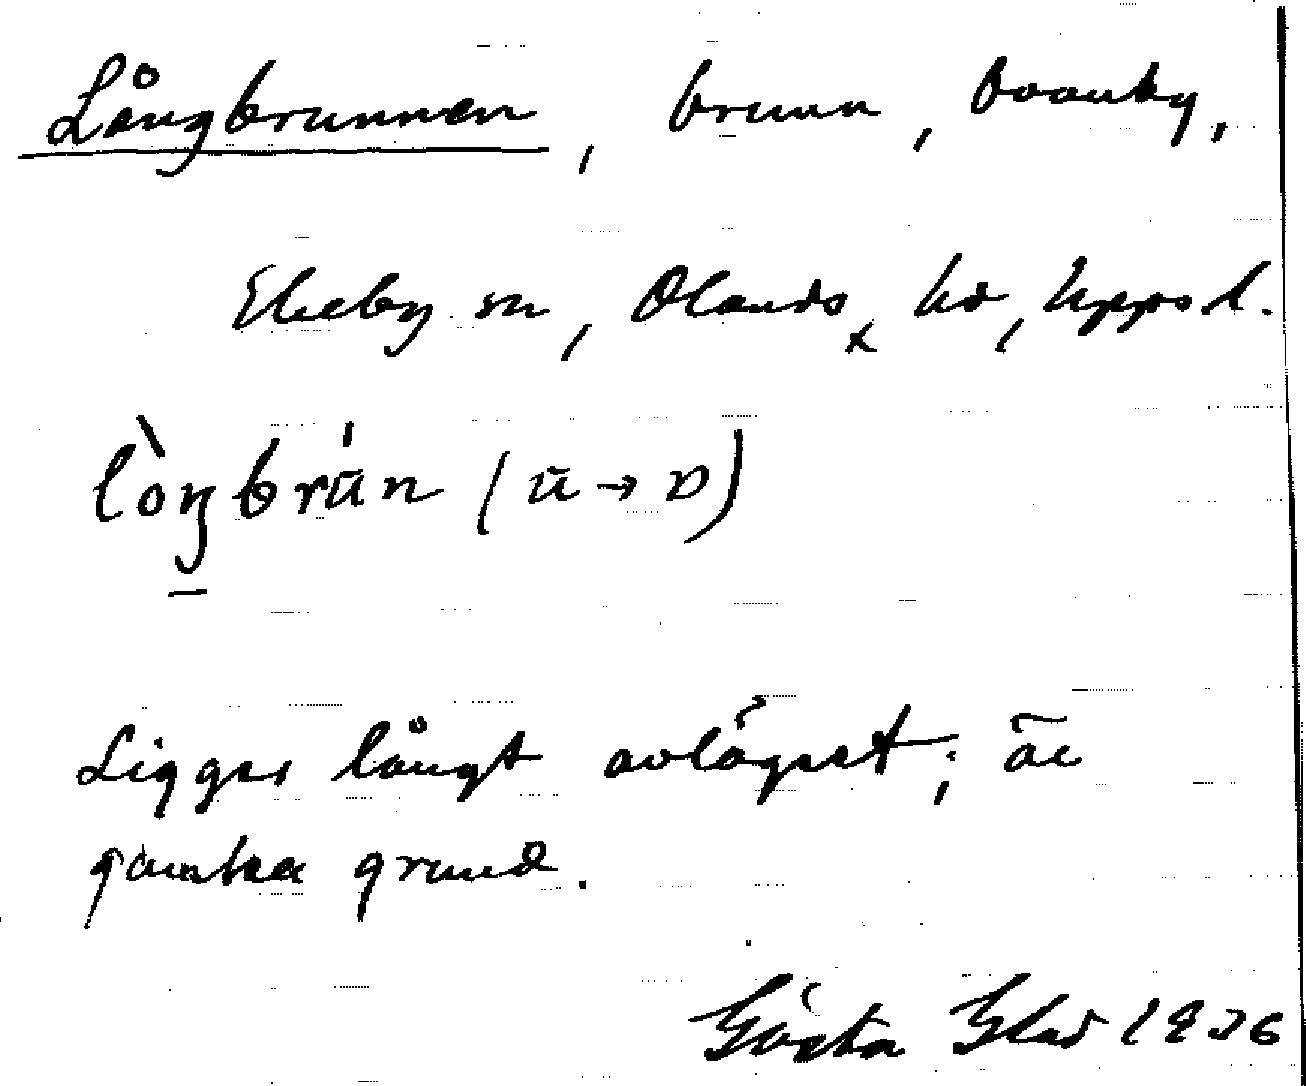 Långbrunnen, brunn,
Ekeby sn, Olands hd, Upps l.
lòŋbrún (ū → ʋ)
Ligger långt avlägset; är
ganska grund.
Gösta Glad 1936